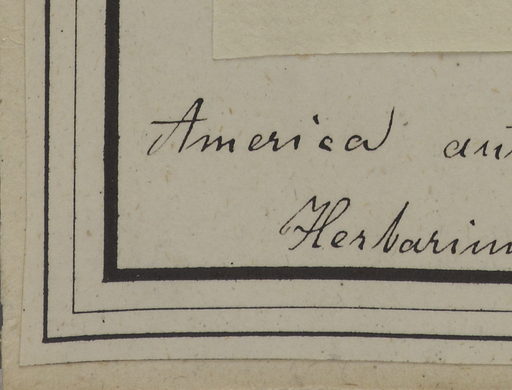 America au
Herbarium